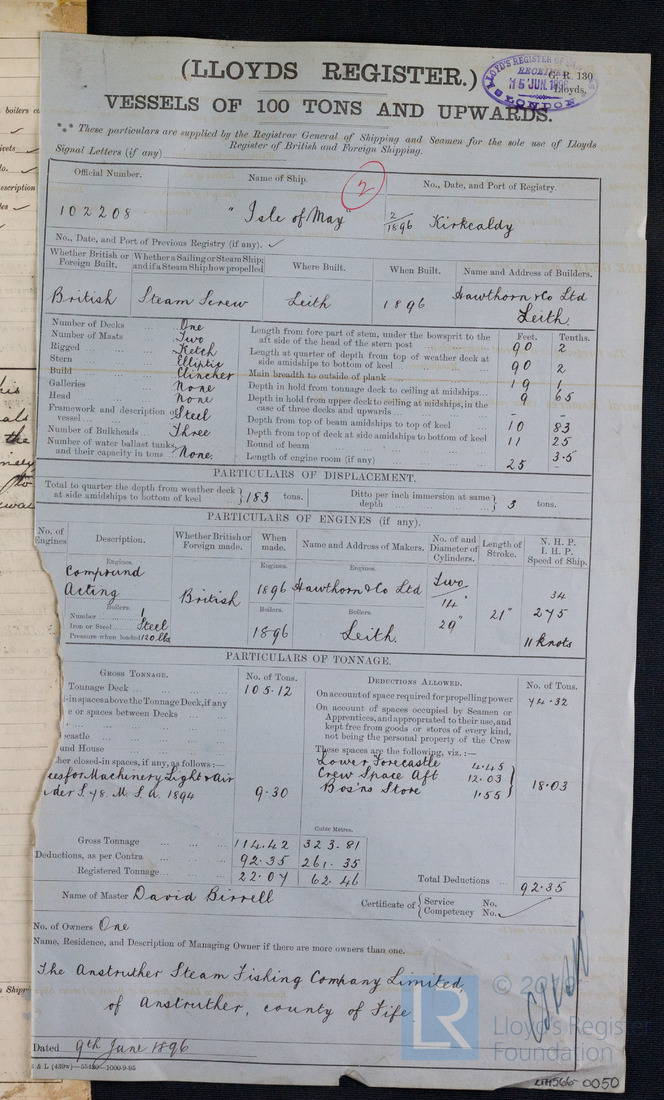 (LLOYDS REGISTER.)
G. R. 130
Lloyds.
LLOYD'S REGISTER OF
RECEIVED
15 JUN. 1896
LONDON
VESSELS OF 100 TONS AND UPWARDS.
*** These particulars are supplied by the Registrar General of Shipping and Seamen for the sole use of Lloyds
Register of British and Foreign Shipping.
Signal Letters (if any)
Official Number. Name of Ship. No., Date, and Port of Registry.
2
102208 "Isle of May" 2/1896 Kirkcaldy
No., Date, and Port of Previous Registry (if any).
Whether British or Foreign Built. Whether a Sailing or Steam Ship; and if a Steam Ship how propelled Where Built. When Built. Name and Address of Builders.
British Steam Screw Leith 1896 Hawthorn & Co Ltd
Leith.
Number of Decks One
Number of Masts Two
Rigged Ketch
Stern Elliptic
Build Clincher
Galleries None
Head None
Framework and description of vessel Steel
Number of Bulkheads Three
Number of water ballast tanks, and their capacity in tons None.
Feet. Tenths.
Length from fore part of stem, under the bowsprit to the aft side of the head of the stern post 90 2
Length at quarter of depth from top of weather deck at side amidships to bottom of keel 90 2
Main breadth to outside of plank 19 1
Depth in hold from tonnage deck to ceiling at midships 9 65
Depth in hold from upper deck to ceiling at midships, in the case of three decks and upwards - -
Depth from top of beam amidships to top of keel 10 83
Depth from top of deck at side amidships to bottom of keel 11 25
Round of beam 3.5
Length of engine room (if any) 25 -
PARTICULARS OF DISPLACEMENT.
Total to quarter the depth from weather deck at side amidships to bottom of keel } 183 tons. Ditto per inch immersion at same depth } 3 tons.
PARTICULARS OF ENGINES (if any).
No. of Engines Description. Whether British or Foreign made. When made. Name and Address of Makers. No. of and Diameter of Cylinders. Length of Stroke. N. H. P. I. H. P. Speed of Ship.
Engines. Engines. Engines.
Compound
Acting
British 1896 Hawthorn & Co Ltd Two 14" 29" 21" 34 275 11 knots
Boilers. Boilers. Boilers.
Number 1
Iron or Steel Steel
Pressure when loaded 120 lbs
1896 Leith.
PARTICULARS OF TONNAGE.
GROSS TONNAGE. No. of Tons. DEDUCTIONS ALLOWED. No. of Tons.
Tonnage Deck 105.12
On account of space required for propelling power 74.32
-in spaces above the Tonnage Deck, if any
e or spaces between Decks
castle
und House
her closed-in spaces, if any, as follows:—
ces for Machinery, Light & Air
der S. 78. M. S. A. 1894 9.30
On account of spaces occupied by Seamen or Apprentices, and appropriated to their use, and kept free from goods or stores of every kind, not being the personal property of the Crew
These spaces are the following, viz.:—
Lower Forecastle 4.45
Crew Space Aft 12.03
Bos'ns Store 1.55
18.03
Cubic Metres.
Gross Tonnage 114.42 323.81
Deductions, as per Contra 92.35 261.35
Registered Tonnage 22.07 62.46
Total Deductions 92.35
Name of Master David Birrell
Certificate of { Service No.
Competency No.
No. of Owners One
Name, Residence, and Description of Managing Owner if there are more owners than one.
The Anstruther Steam Fishing Company Limited
of Anstruther, county of Fife.
Dated 9th June 1896
& L (439w)—55430—1000-9-95
LR
Lloyd's Register
Foundation
LH566-0050